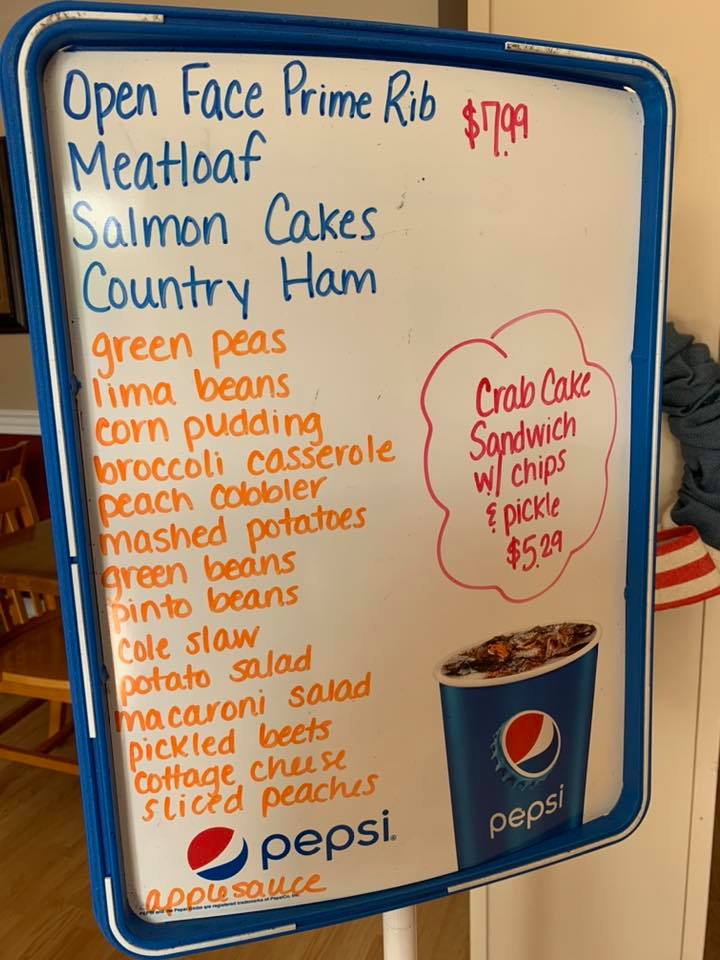 Open Face Prime Rib $7.99
Meatloaf
Salmon Cakes
Country Ham
green peas
lima beans
corn pudding
broccoli casserole
peach cobbler
mashed potatoes
green beans
pinto beans
cole slaw
potato salad
macaroni salad
pickled beets
cottage cheese
sliced peaches
applesauce
Crab Cake
Sandwich
w/ chips
& pickle
$5.29
pepsi
pepsi